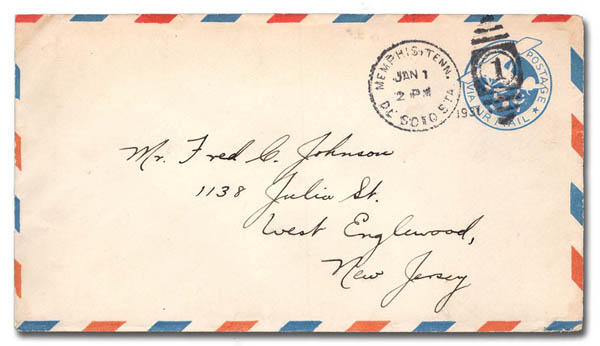 MEMPHIS, TENN.
JAN 1
2 PM
DE SOTO STA.
1
POSTAGE
VIA AIR MAIL
Mr. Fred C. Johnson
1138 Julia St.
West Englewood,
New Jersey